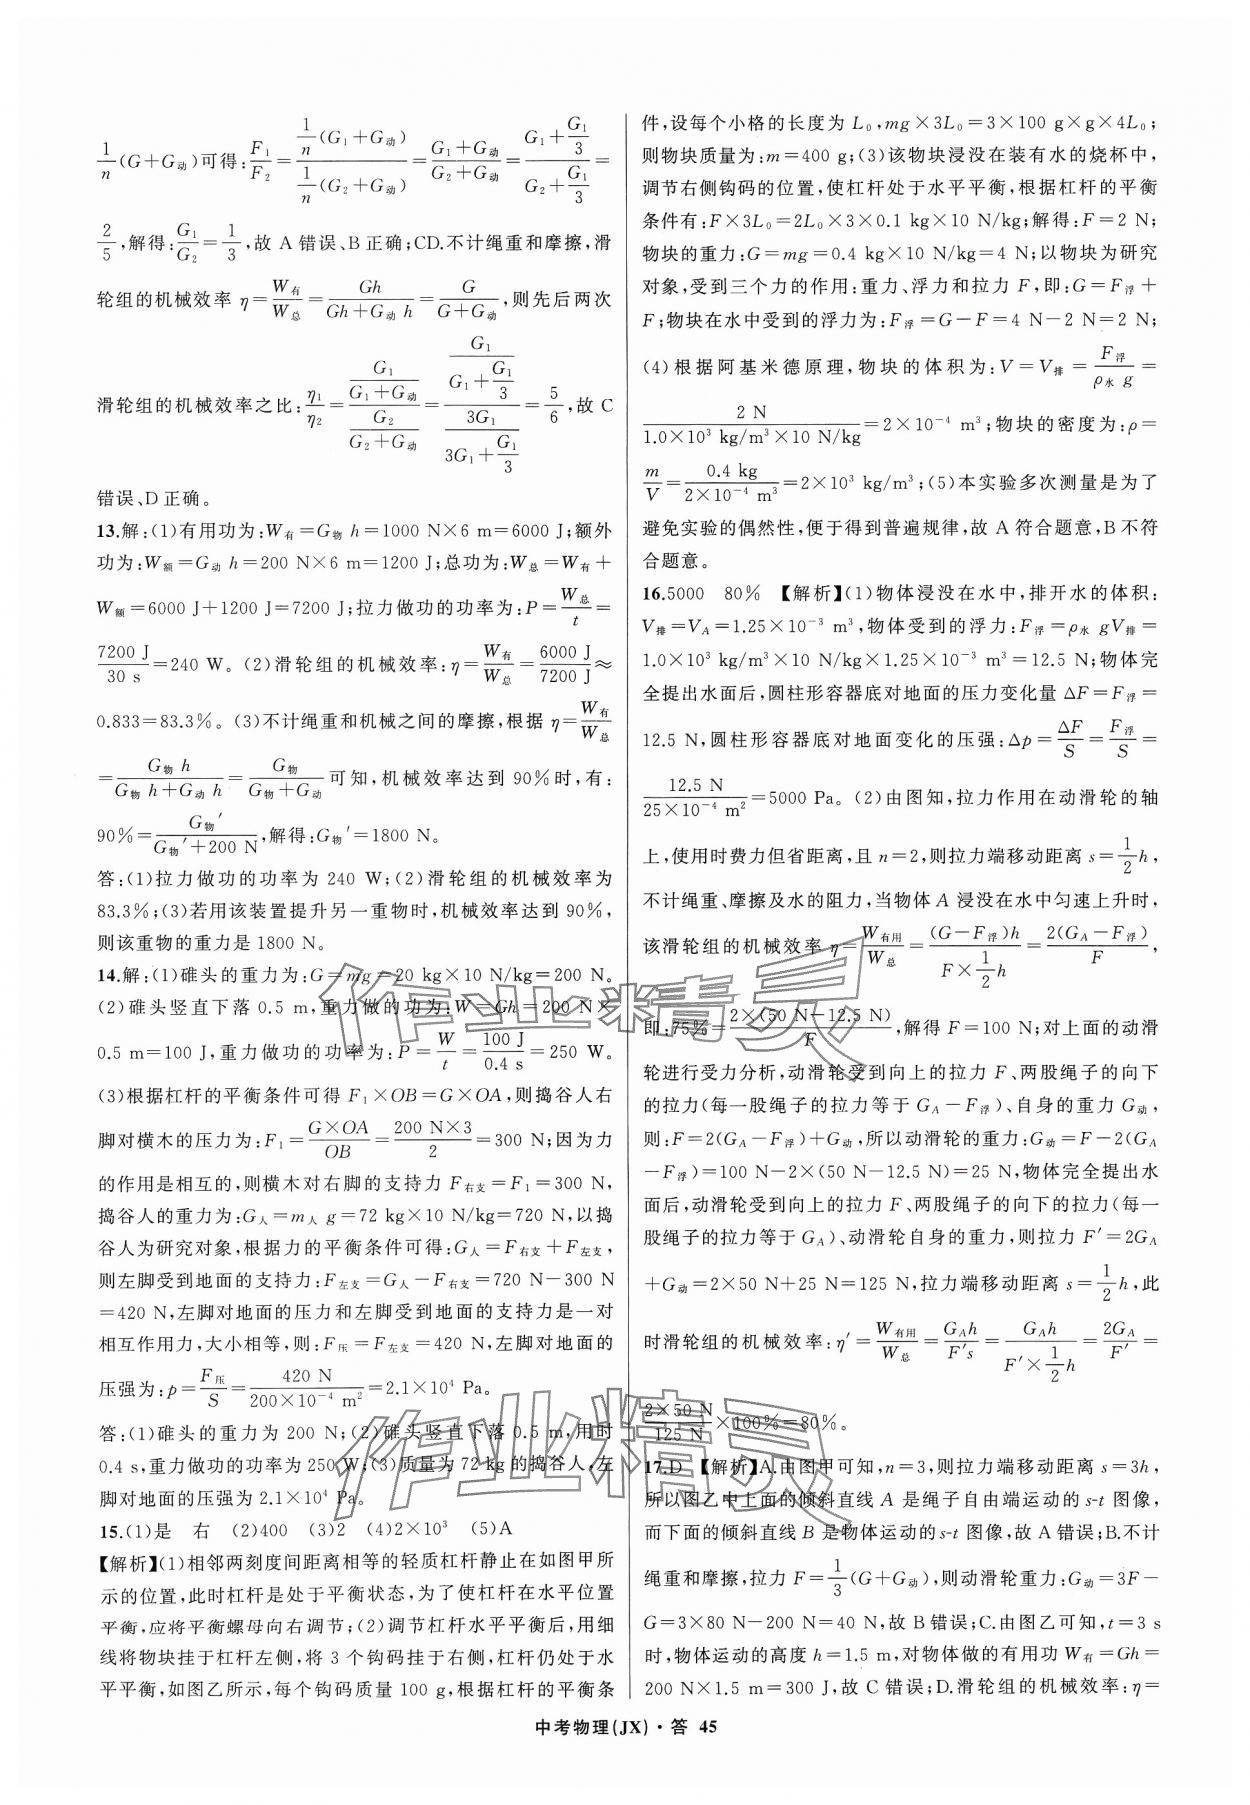 1/n(G+G动)可得:F₁/F₂=[1/n(G₁+G动)]/[1/n(G₂+G动)]=(G₁+G动)/(G₂+G动)=(G₁+G₁/3)/(G₂+G₁/3)=
2/5,解得:G₁/G₂=1/3,故 A 错误、B 正确;CD.不计绳重和摩擦,滑
轮组的机械效率 η=W有/W总=Gh/(Gh+G动 h)=G/(G+G动),则先后两次
滑轮组的机械效率之比:η₁/η₂=[G₁/(G₁+G动)]/[G₂/(G₂+G动)]=[G₁/(G₁+G₁/3)]/[3G₁/(3G₁+G₁/3)]=5/6,故 C
错误、D 正确。
13.解:(1)有用功为:W有=G物 h=1000 N×6 m=6000 J;额外
功为:W额=G动 h=200 N×6 m=1200 J;总功为:W总=W有+
W额=6000 J+1200 J=7200 J;拉力做功的功率为:P=W总/t=
7200 J/30 s=240 W。(2)滑轮组的机械效率:η=W有/W总=6000 J/7200 J≈
0.833=83.3%。(3)不计绳重和机械之间的摩擦,根据 η=W有/W总
=G物 h/(G物 h+G动 h)=G物/(G物+G动)可知,机械效率达到 90%时,有:
90%=G物′/(G物′+200 N),解得:G物′=1800 N。
答:(1)拉力做功的功率为 240 W;(2)滑轮组的机械效率为
83.3%;(3)若用该装置提升另一重物时,机械效率达到 90%,
则该重物的重力是 1800 N。
14.解:(1)碓头的重力为:G=mg=20 kg×10 N/kg=200 N。
(2)碓头竖直下落 0.5 m,重力做的功为:W=Gh=200 N×
0.5 m=100 J,重力做功的功率为:P=W/t=100 J/0.4 s=250 W。
(3)根据杠杆的平衡条件可得 F₁×OB=G×OA,则捣谷人右
脚对横木的压力为:F₁=G×OA/OB=200 N×3/2=300 N;因为力
的作用是相互的,则横木对右脚的支持力 F右支=F₁=300 N,
捣谷人的重力为:G人=m人 g=72 kg×10 N/kg=720 N,以捣
谷人为研究对象,根据力的平衡条件可得:G人=F右支+F左支,
则左脚受到地面的支持力:F左支=G人-F右支=720 N-300 N
=420 N,左脚对地面的压力和左脚受到地面的支持力是一对
相互作用力,大小相等,则:F压=F左支=420 N,左脚对地面的
压强为:p=F压/S=420 N/(200×10⁻⁴ m²)=2.1×10⁴ Pa。
答:(1)碓头的重力为 200 N;(2)碓头竖直下落 0.5 m,用时
0.4 s,重力做功的功率为 250 W;(3)质量为 72 kg 的捣谷人,左
脚对地面的压强为 2.1×10⁴ Pa。
15.(1)是 右 (2)400 (3)2 (4)2×10³ (5)A
【解析】(1)相邻两刻度间距离相等的轻质杠杆静止在如图甲所
示的位置,此时杠杆是处于平衡状态,为了使杠杆在水平位置
平衡,应将平衡螺母向右调节;(2)调节杠杆水平平衡后,用细
线将物块挂于杠杆左侧,将 3 个钩码挂于右侧,杠杆仍处于水
平平衡,如图乙所示,每个钩码质量 100 g,根据杠杆的平衡条
件,设每个小格的长度为 L₀,mg×3L₀=3×100 g×g×4L₀;
则物块质量为:m=400 g;(3)该物块浸没在装有水的烧杯中,
调节右侧钩码的位置,使杠杆处于水平平衡,根据杠杆的平衡
条件有:F×3L₀=2L₀×3×0.1 kg×10 N/kg;解得:F=2 N;
物块的重力:G=mg=0.4 kg×10 N/kg=4 N;以物块为研究
对象,受到三个力的作用:重力、浮力和拉力 F,即:G=F浮+
F;物块在水中受到的浮力为:F浮=G-F=4 N-2 N=2 N;
(4)根据阿基米德原理,物块的体积为:V=V排=F浮/(ρ水 g)=
2 N/(1.0×10³ kg/m³×10 N/kg)=2×10⁻⁴ m³;物块的密度为:ρ=
m/V=0.4 kg/(2×10⁻⁴ m³)=2×10³ kg/m³;(5)本实验多次测量是为了
避免实验的偶然性,便于得到普遍规律,故 A 符合题意,B 不符
合题意。
16.5000 80% 【解析】(1)物体浸没在水中,排开水的体积:
V排=V_A=1.25×10⁻³ m³,物体受到的浮力:F浮=ρ水 gV排=
1.0×10³ kg/m³×10 N/kg×1.25×10⁻³ m³=12.5 N;物体完
全提出水面后,圆柱形容器底对地面的压力变化量 ΔF=F浮=
12.5 N,圆柱形容器底对地面变化的压强:Δp=ΔF/S=F浮/S=
12.5 N/(25×10⁻⁴ m²)=5000 Pa。(2)由图知,拉力作用在动滑轮的轴
上,使用时费力但省距离,且 n=2,则拉力端移动距离 s=1/2 h,
不计绳重、摩擦及水的阻力,当物体 A 浸没在水中匀速上升时,
该滑轮组的机械效率 η=W有用/W总=(G-F浮)h/(F×1/2 h)=2(G_A-F浮)/F,
即:75%=2×(50 N-12.5 N)/F,解得 F=100 N;对上面的动滑
轮进行受力分析,动滑轮受到向上的拉力 F、两股绳子的向下
的拉力(每一股绳子的拉力等于 G_A-F浮)、自身的重力 G动,
则:F=2(G_A-F浮)+G动,所以动滑轮的重力:G动=F-2(G_A
-F浮)=100 N-2×(50 N-12.5 N)=25 N,物体完全提出水
面后,动滑轮受到向上的拉力 F、两股绳子的向下的拉力(每一
股绳子的拉力等于 G_A)、动滑轮自身的重力,则拉力 F′=2G_A
+G动=2×50 N+25 N=125 N,拉力端移动距离 s=1/2 h,此
时滑轮组的机械效率:η′=W有用/W总=G_A h/F′s=G_A h/(F′×1/2 h)=2G_A/F′=
2×50 N/125 N×100%=80%。
17.D 【解析】A.由图甲可知,n=3,则拉力端移动距离 s=3h,
所以图乙中上面的倾斜直线 A 是绳子自由端运动的 s-t 图像,
而下面的倾斜直线 B 是物体运动的 s-t 图像,故 A 错误;B.不计
绳重和摩擦,拉力 F=1/3(G+G动),则动滑轮重力:G动=3F-
G=3×80 N-200 N=40 N,故 B 错误;C.由图乙可知,t=3 s
时,物体运动的高度 h=1.5 m,对物体做的有用功 W有=Gh=
200 N×1.5 m=300 J,故 C 错误;D.滑轮组的机械效率:η=
作业精灵
作业精灵
中考物理(JX)·答 45